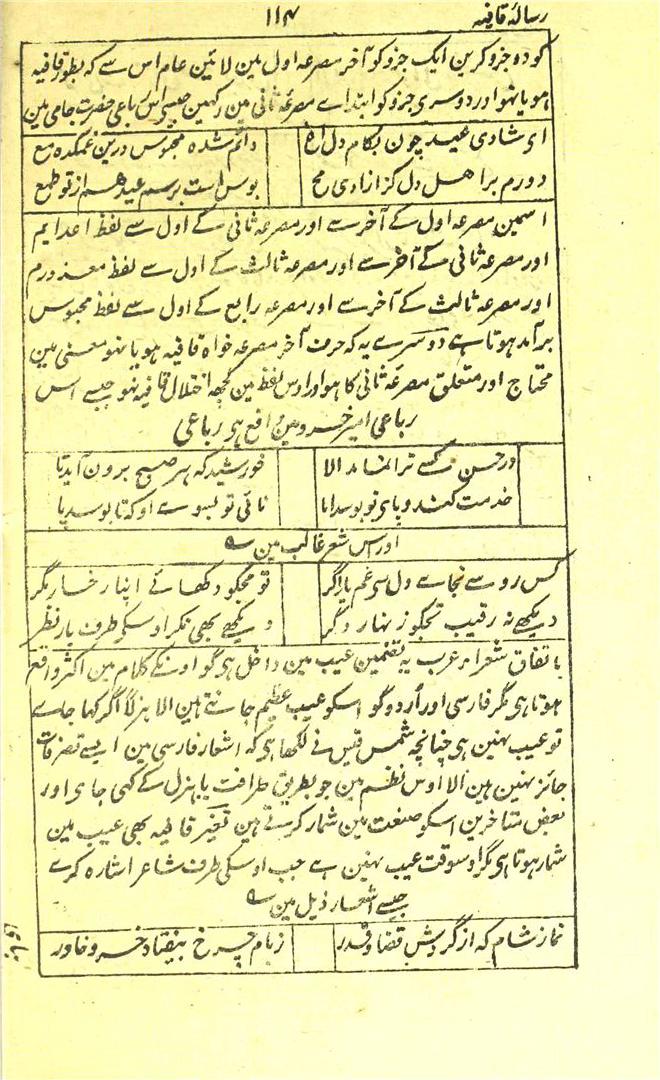 رسالۂ قافیہ
۱۱۴
کو دو جزو کرین ایک جزو کو آخر مصرعہ اول مین لائین عام اس سے کہ بطور قافیہ
ہو یا نہو اور دوسری جزو کو ابتداے مصرعۂ ثانی مین رکہین جیسے اس رباعی حضرت جامی مین
ای شادی عید چون بکام دل اع دائم شدہ محبوس درین غمکدہ مع
دورم بر اھل دل گز ازادی مح بوس است برسم عید ھم از تو طمع
اسمین مصرعہ اول کے آخر سے اور مصرعہ ثانی کے اول سے لفظ اعدایم
اور مصرعہ ثانی کے آخر سے اور مصرعہ ثالث کے اول سے لفظ معذورم
اور مصرعہ ثالث کے آخر سے اور مصرعہ رابع کے اول سے لفظ محبوس
برآمد ہوتا ہے دوسرے یہ کہ حرف آخر مصرعہ خواہ قافیہ ہو یا نہو معنی مین
محتاج اور متعلق مصرعۂ ثانی کا ہو اور اوس لفظ مین کچھہ اختلال قافیہ نہو جیسے اس
رباعی امیر خسرو مین واقع ہی رباعی
در حسن کسے ترا نماند الا خورشید کہ ہر صبح برون آید تا
خدمت کند و پای تو بوسد اما نائی تو بسوے او کہ تا بوسد پا
اور اس شعر غالب مین
کس رو سے نجا سے دل سی غم یار اگر تو مجکو دکھائے اپنا رخسار مگر
دیکھے نہ رقیب تجکو زنہار و گر دیکھے بھی مگر اوسکو طرف یار نظر
باتفاق شعراء عرب یہ تضمین عیب مین داخل ہی گو اونکے کلام مین اکثر واقع
ہوتا ہی مگر فارسی اور اُردو گو اسکو عیب عظیم جانتے ہین الا ہزلاً اگر کہا جاے
تو عیب نہین ہی چنانچہ شمس قیس نے لکھا ہی کہ اشعار فارسی مین ایسے تصرفات
جائز نہین ہین الا اوس نظم مین جو بطریق ظرافت یا ہزل کے کہی جای اور
بعض متاخرین اسکو صنعت مین شمار کرتے ہین تغیر قافیہ بھی عیب مین
شمار ہوتا ہی مگر اوسوقت عیب نہین ہے جب اوسکی طرف شاعر اشارہ کرے
جیسے اشعار ذیل مین
نماز شام کہ از گردش قضا و قدر ز بام چرخ بیفتاد خسرو خاور